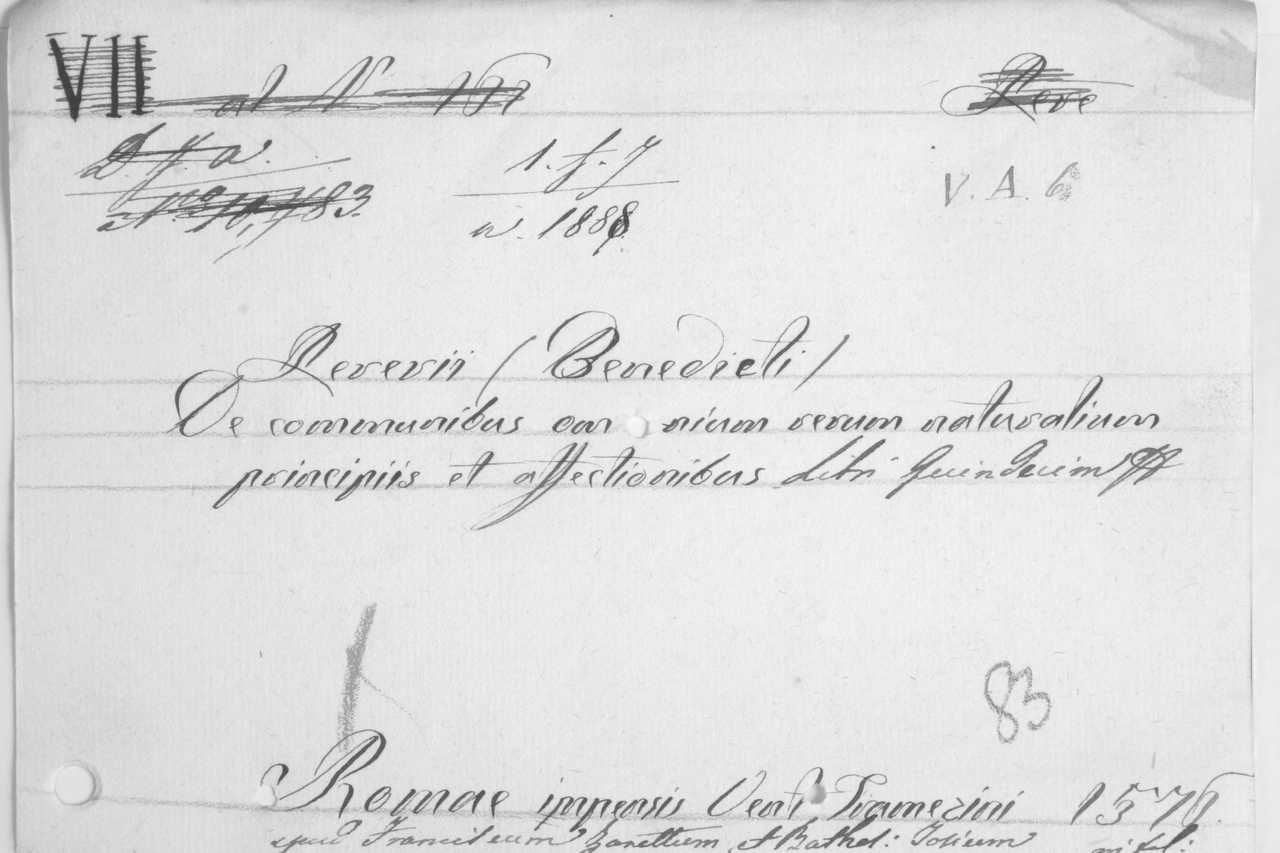 VII
Rere
D. f. a.
1. f. 7
N.ro 10,483.
a. 1888.
V. A. 6
Rererii (Benedicti)
De communibus omnium rerum naturalium
principiis et affectionibus Libri Quindecim
83
Romae impensis Vent Tramezini 1576.
apud Franciscum Zanettum et Barthol: Tosium